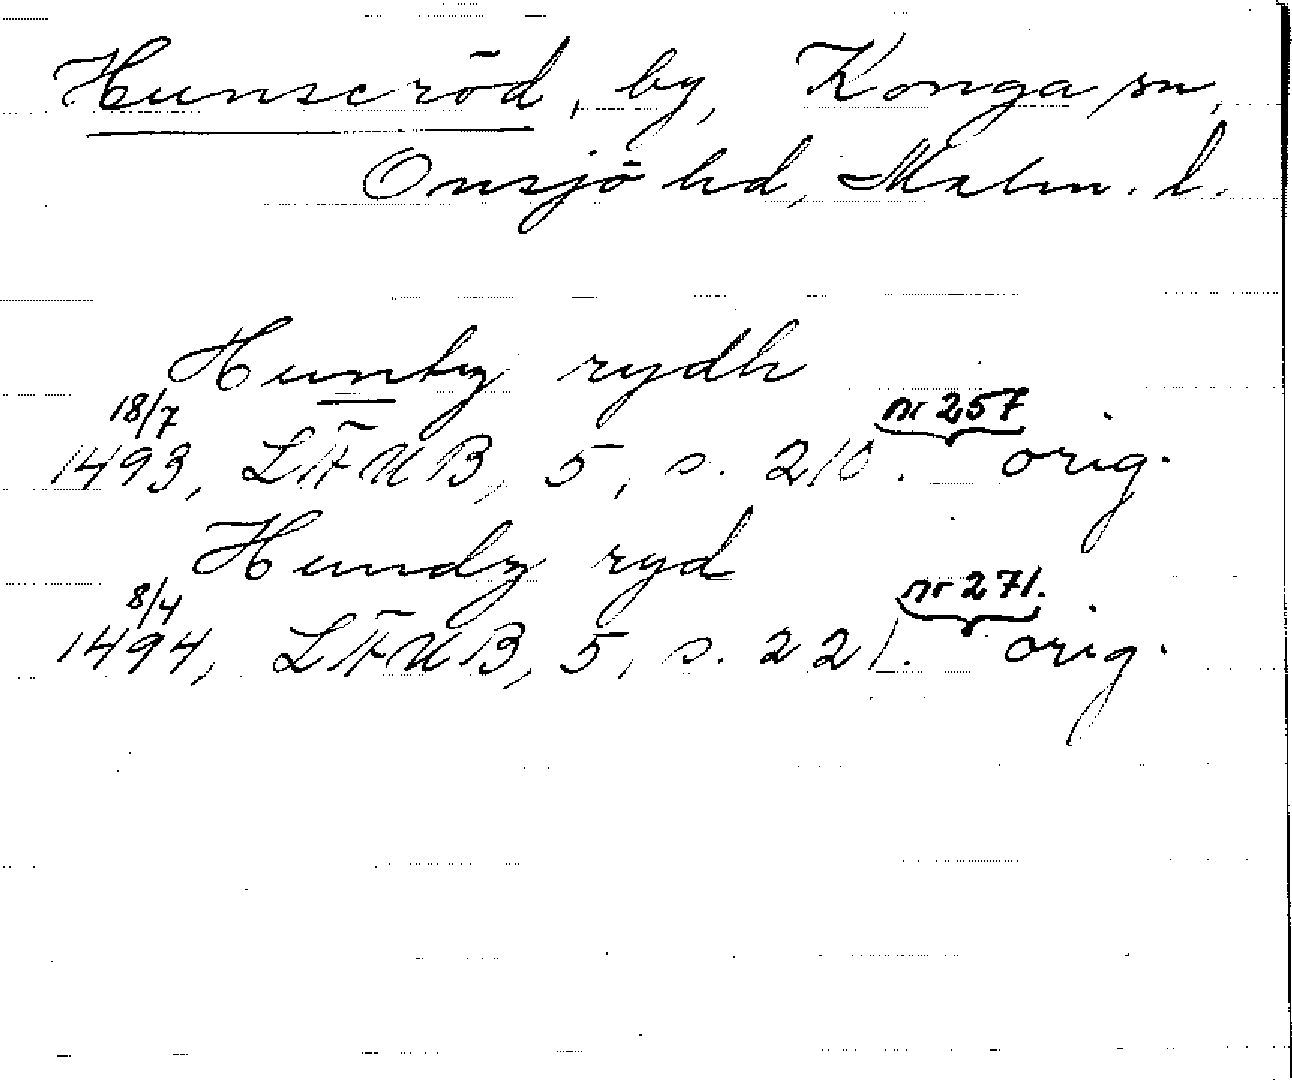 Hunseröd, by, Konga sn,
Onsjö hd, Malm. l.
Huntz rydh
18/7 nr 257
1493, LÄUB, 5, s. 210. orig.
Hundz ryd
8/4 nr 271.
1494, LÄUB, 5, s. 221. orig.